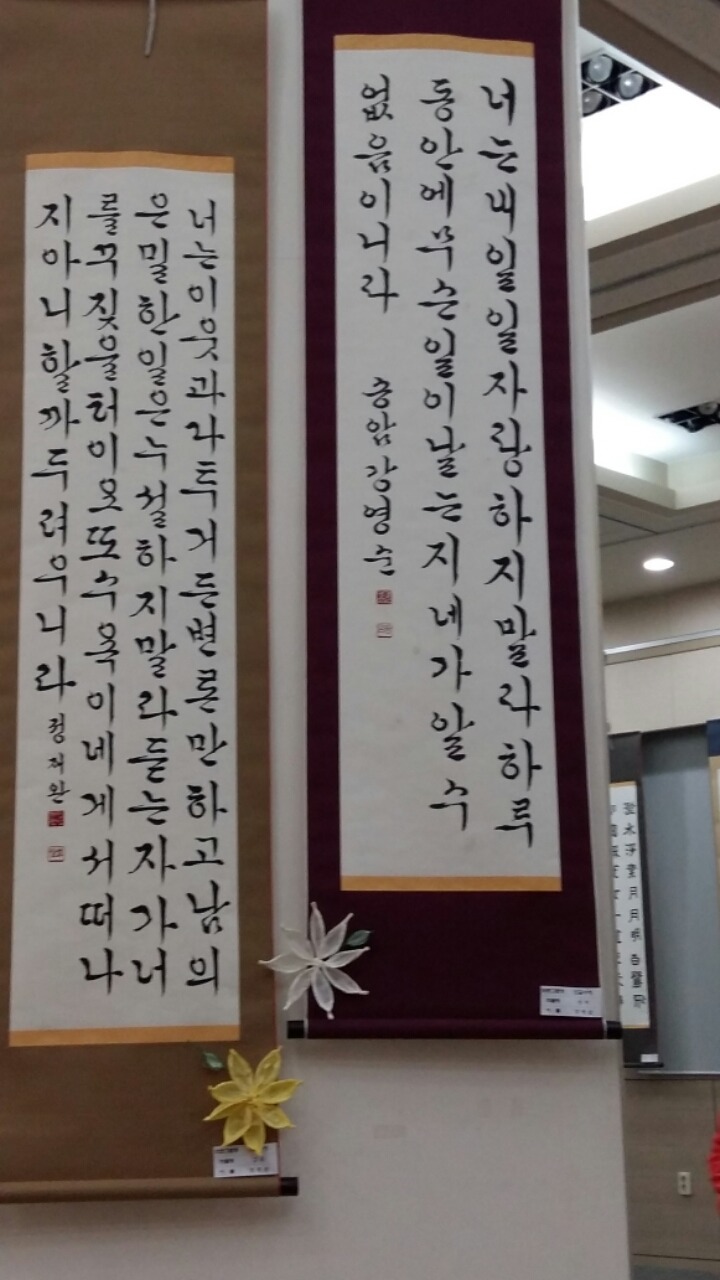 너는내일일자랑하지말라하루
동안에무슨일이날는지네가알수
없음이니라
중암강영순
너는이웃과다투거든변론만하고남의
은밀한일은누설하지말라듣는자가너
를꾸짖을터이요또수욕이네게서떠나
지아니할까두려우니라
정재완